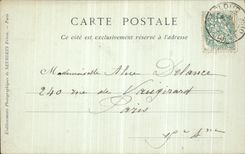 CARTE POSTALE
Ce côté est exclusivement réservé à l'adresse
Mademoiselle Alice Delance
240 rue de Vaugirard
Paris
Etablissements Photographiques de NEURDEIN Frères. - Paris